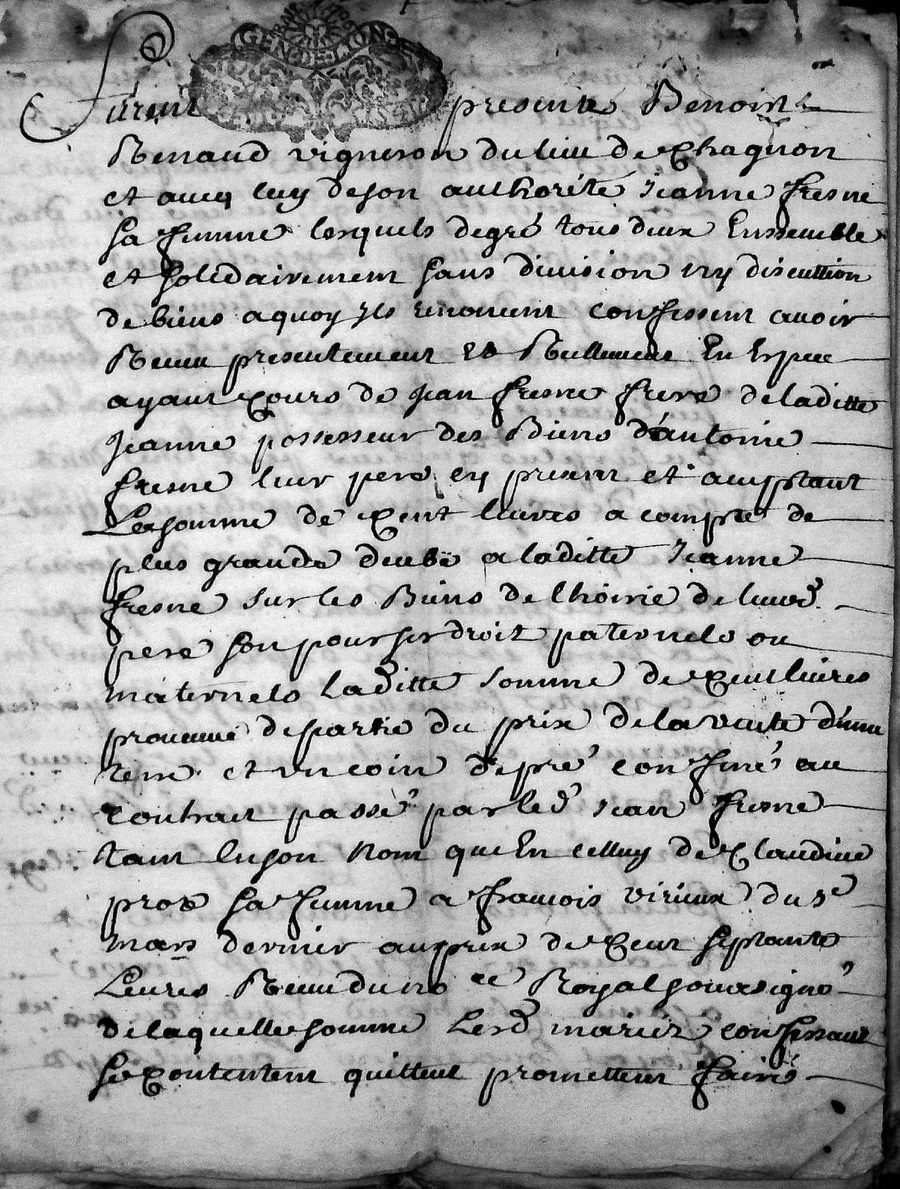 GEN·DE·LION
Furent presents Benoist
Renaud vigneron du lieu de Chagnon
et avecq luy de son authorité Jeanne fresne
sa femme lesquels de gré tous deux Ensemble
et solidairement sans division ny discution
de biens a quoy ils renoncent confessent avoir
Receu presentement et Reellement En Espece
ayant Cours de Jean fresne frere de laditte
Jeanne possesseur des Biens d'antoine
fresne leur pere en present et acceptant
La somme de Cent livres a compte de
plus grande deube a laditte Jeanne
fresne sur les Biens de l'hoirie de leurd.
pere soit pour ses droits paternels ou
maternels Laditte somme de Cent livres
provenue de partie du prix de la vente d'une
terre et un coin de pré confiné au
contrat passé par led. Jean fresne
tant En son Nom que En celluy de Claudine
sa femme a françois virieux du 5e
mars dernier au prix de Cent septante
Livres Receu du nore Royal soussigné
de laquelle somme Lesd. mariez confessant
se Contentent quittent promettent faire